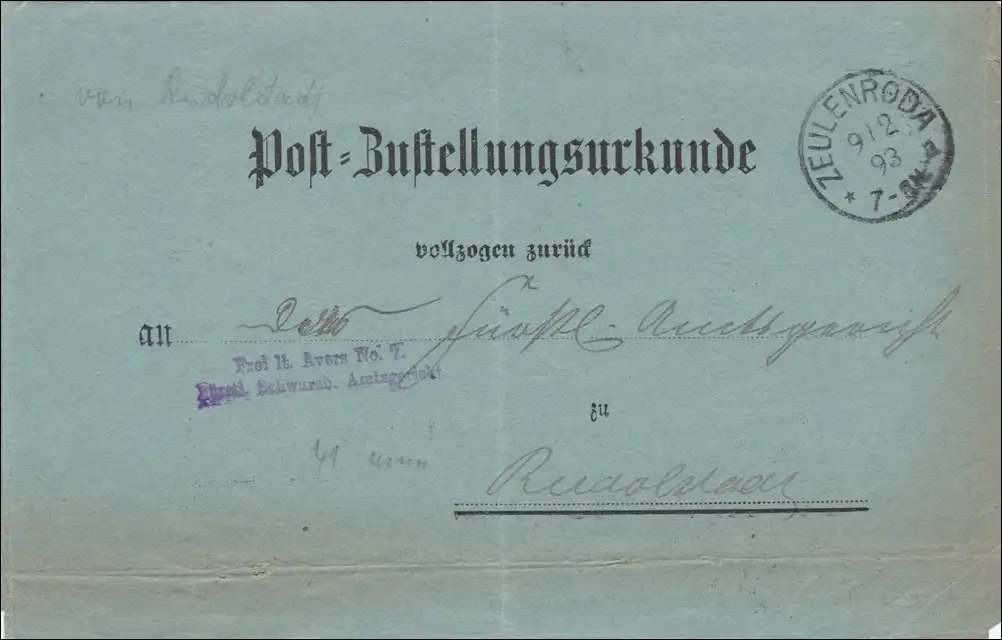 von Rudolstadt
ZEULENRODA
9 12
93
7-8N
Post-Zustellungsurkunde
vollzogen zurück
an das Fürstl. Amtsgericht
Frei lt. Avers No. 7.
Fürstl. Schwarzb. Amtsgericht
zu
Rudolstadt